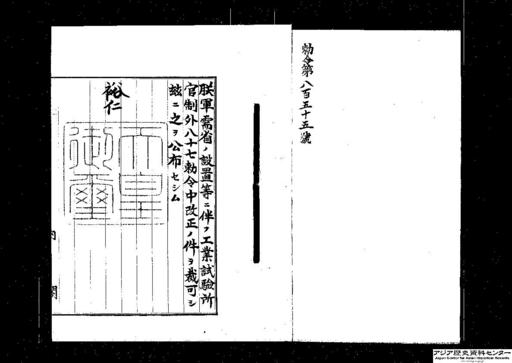 勅令第八百五十五號
朕軍需省ノ設置等ニ伴フ工業試驗所
官制外八十七勅令中改正ノ件ヲ裁可シ
玆ニ之ヲ公布セシム
裕仁
天皇
御璽
内閣
アジア歴史資料センター
Japan Center for Asian Historical Records